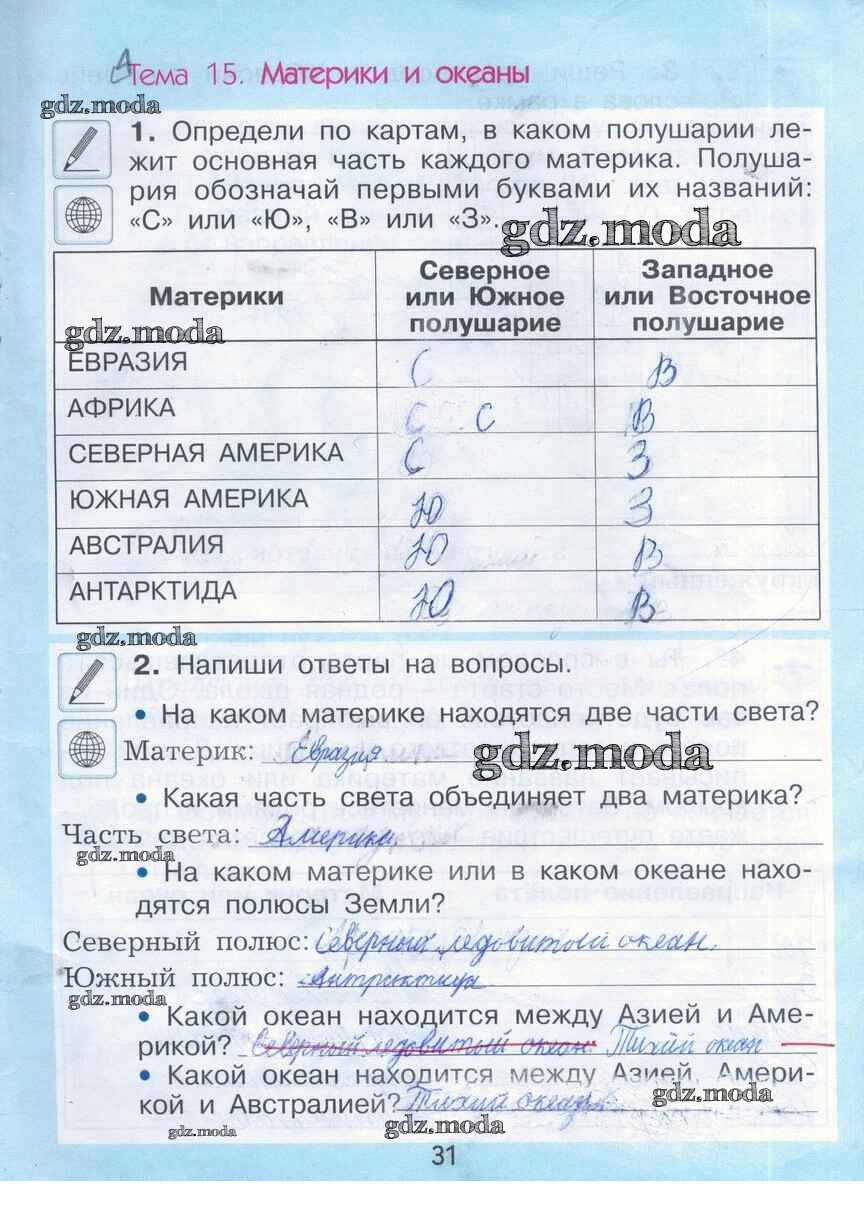 Тема 15. Материки и океаны
gdz.moda
1. Определи по картам, в каком полушарии ле-
жит основная часть каждого материка. Полуша-
рия обозначай первыми буквами их названий:
«С» или «Ю», «В» или «З».
gdz.moda
Материки
Северное
или Южное
полушарие
Западное
или Восточное
полушарие
gdz.moda
ЕВРАЗИЯ С В
АФРИКА С С В
СЕВЕРНАЯ АМЕРИКА С З
ЮЖНАЯ АМЕРИКА Ю З
АВСТРАЛИЯ Ю В
АНТАРКТИДА Ю В
gdz.moda
2. Напиши ответы на вопросы.
• На каком материке находятся две части света?
Материк: Евразия
gdz.moda
• Какая часть света объединяет два материка?
Часть света: Америка
gdz.moda
• На каком материке или в каком океане нахо-
дятся полюсы Земли?
Северный полюс: Северный ледовитый океан.
Южный полюс: Антрактида
gdz.moda
• Какой океан находится между Азией и Аме-
рикой? Северный ледовитый океан. Тихий океан
• Какой океан находится между Азией, Амери-
кой и Австралией? Тихий океан
gdz.moda
gdz.moda
gdz.moda
31